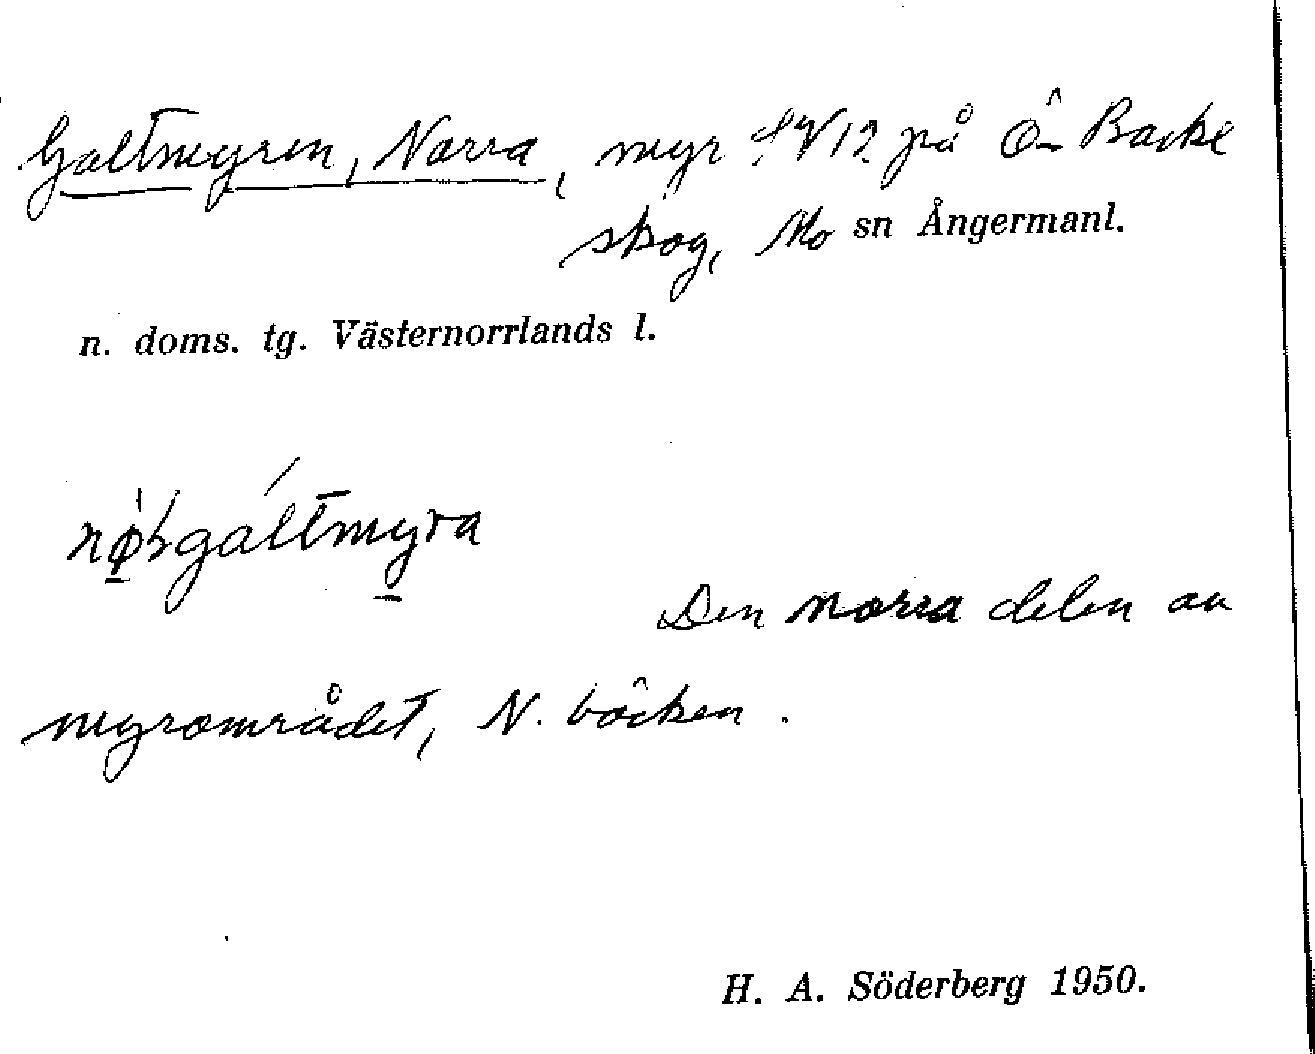 Galtmyren, Norra, myr på Ö- Backe
skog, Mo sn Ångermanl.
n. doms. tg. Västernorrlands l.
galtmyra
Den norra delen av
myrområdet, N. bäcken.
H. A. Söderberg 1950.